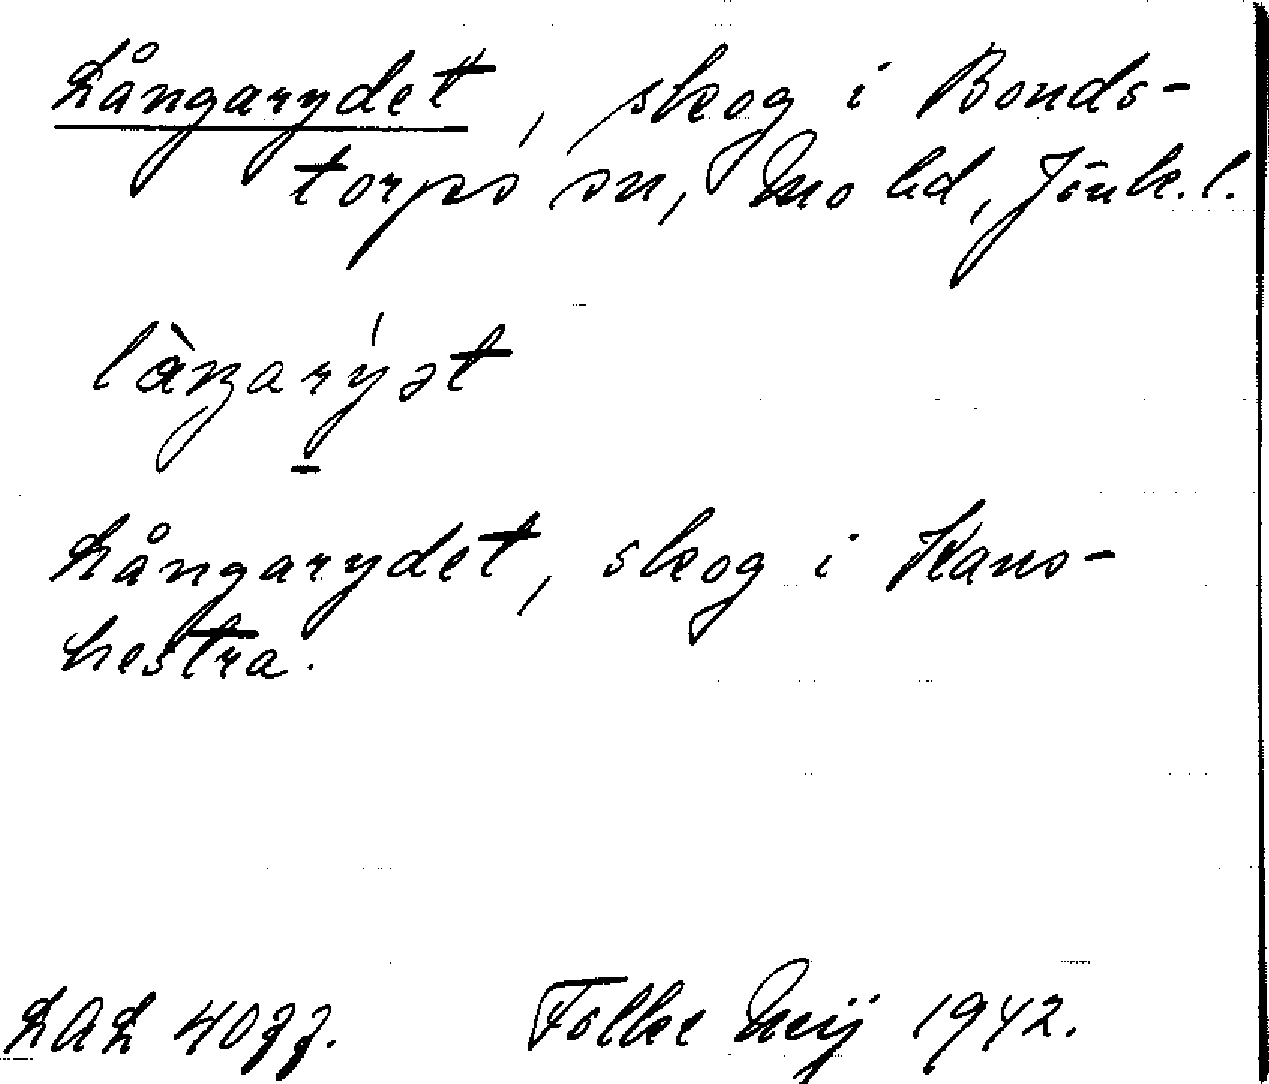 Långarydet, skog i Bonds-
torps sn, Mo hd, Jönk. l.
làŋarýət
Långarydet, skog i Kans-
hestra.
LAL 4077. Folke
1942.